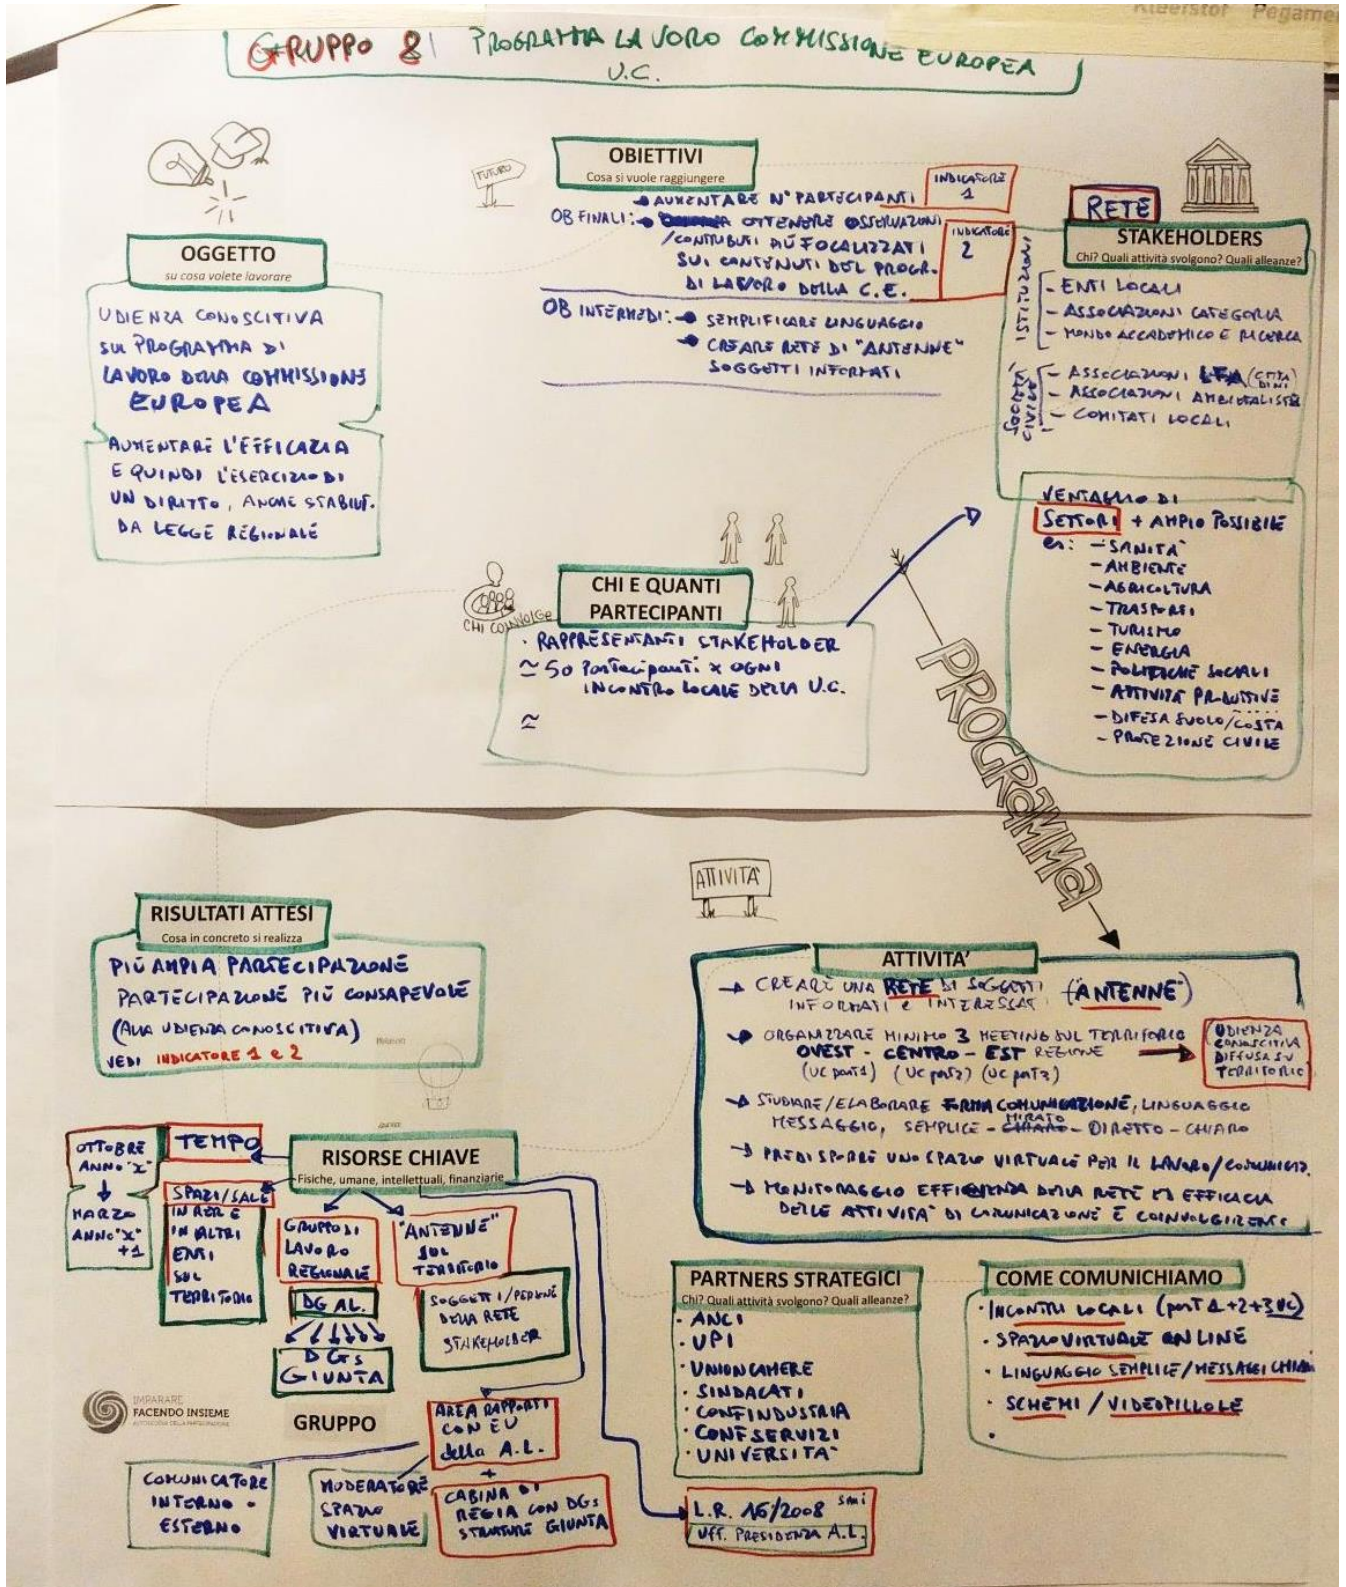 Kleefstof Pegame
GRUPPO 8 PROGRAMMA LAVORO COMMISSIONE EUROPEA
U.C.
OGGETTO
su cosa volete lavorare
UDIENZA CONOSCITIVA
SU PROGRAMMA DI
LAVORO DELLA COMMISSIONE
EUROPEA
AUMENTARE L'EFFICACIA
E QUINDI L'ESERCIZIO DI
UN DIRITTO, ANCHE STABILIT.
DA LEGGE REGIONALE
FUTURO
OBIETTIVI
Cosa si vuole raggiungere
AUMENTARE N° PARTECIPANTI
INDICATORE
1
OB FINALI: OTTENERE OSSERVAZIONI
/CONTRIBUTI PIÙ FOCALIZZATI
SUI CONTENUTI DEL PROGR.
DI LAVORO DELLA C.E.
INDICATORE
2
OB INTERMEDI: SEMPLIFICARE LINGUAGGIO
CREARE RETE DI "ANTENNE"
SOGGETTI INFORMATI
RETE
STAKEHOLDERS
Chi? Quali attività svolgono? Quali alleanze?
ISTITUZIONI
- ENTI LOCALI
- ASSOCIAZIONI CATEGORIA
- MONDO ACCADEMICO E RICERCA
SOCIETÀ CIVILE
- ASSOCIAZIONI (CITTADINI)
- ASSOCIAZIONI AMBIENTALISTE
- COMITATI LOCALI
VENTAGLIO DI
SETTORI + AMPIO POSSIBILE
es: - SANITÀ
- AMBIENTE
- AGRICOLTURA
- TRASPORTI
- TURISMO
- ENERGIA
- POLITICHE SOCIALI
- ATTIVITÀ PRODUTTIVE
- DIFESA SUOLO/COSTA
- PROTEZIONE CIVILE
CHI COINVOLGE
CHI E QUANTI
PARTECIPANTI
· RAPPRESENTANTI STAKEHOLDER
≃ 50 Partecipanti x OGNI
INCONTRO LOCALE DELLA U.C.
≃
PROGRAMMA
RISULTATI ATTESI
Cosa in concreto si realizza
PIÙ AMPIA PARTECIPAZIONE
PARTECIPAZIONE PIÙ CONSAPEVOLE
(ALLA UDIENZA CONOSCITIVA)
VEDI INDICATORE 1 e 2
ATTIVITA'
ATTIVITA'
CREARE UNA RETE DI SOGGETTI ("ANTENNE")
INFORMATI e INTERESSATI
ORGANIZZARE MINIMO 3 MEETING SUL TERRITORIO
OVEST - CENTRO - EST REGIONE
(UC part1) (UC part2) (UC part3)
UDIENZA
CONOSCITIVA
DIFFUSA SU
TERRITORIO
STUDIARE/ELABORARE FORMA COMUNICAZIONE, LINGUAGGIO
MESSAGGIO, SEMPLICE - CHIARO MIRATO - DIRETTO - CHIARO
PREDISPORRE UNO SPAZIO VIRTUALE PER IL LAVORO/COMUNICAZ.
MONITORAGGIO EFFICIENZA DELLA RETE ED EFFICACIA
DELLE ATTIVITA' DI COMUNICAZIONE E COINVOLGIMENTO
OTTOBRE
ANNO "X"
MARZO
ANNO "X"
+1
TEMPO
RISORSE CHIAVE
Fisiche, umane, intellettuali, finanziarie
SPAZI/SALE
IN RER E
IN ALTRI
ENTI
SUL
TERRITORIO
GRUPPO DI
LAVORO
REGIONALE
DG A.L.
DGs
GIUNTA
"ANTENNE"
SUL
TERRITORIO
SOGGETTI/PERSONE
DELLA RETE
STAKEHOLDER
PARTNERS STRATEGICI
Chi? Quali attività svolgono? Quali alleanze?
· ANCI
· UPI
· UNIONCAMERE
· SINDACATI
· CONFINDUSTRIA
· CONFSERVIZI
· UNIVERSITA'
COME COMUNICHIAMO
· INCONTRI LOCALI (part 1+2+3 UC)
· SPAZIO VIRTUALE ON LINE
· LINGUAGGIO SEMPLICE/MESSAGGI CHIARI
· SCHEMI / VIDEOPILLOLE
IMPARARE
FACENDO INSIEME
GRUPPO
AREA RAPPORTI
CON EU
della A.L.
+
CABINA DI
REGIA CON DGs
STRUTTURE GIUNTA
COMUNICATORE
INTERNO -
ESTERNO
MODERATORE
SPAZIO
VIRTUALE
L.R. 16/2008 smi
UFF. PRESIDENZA A.L.